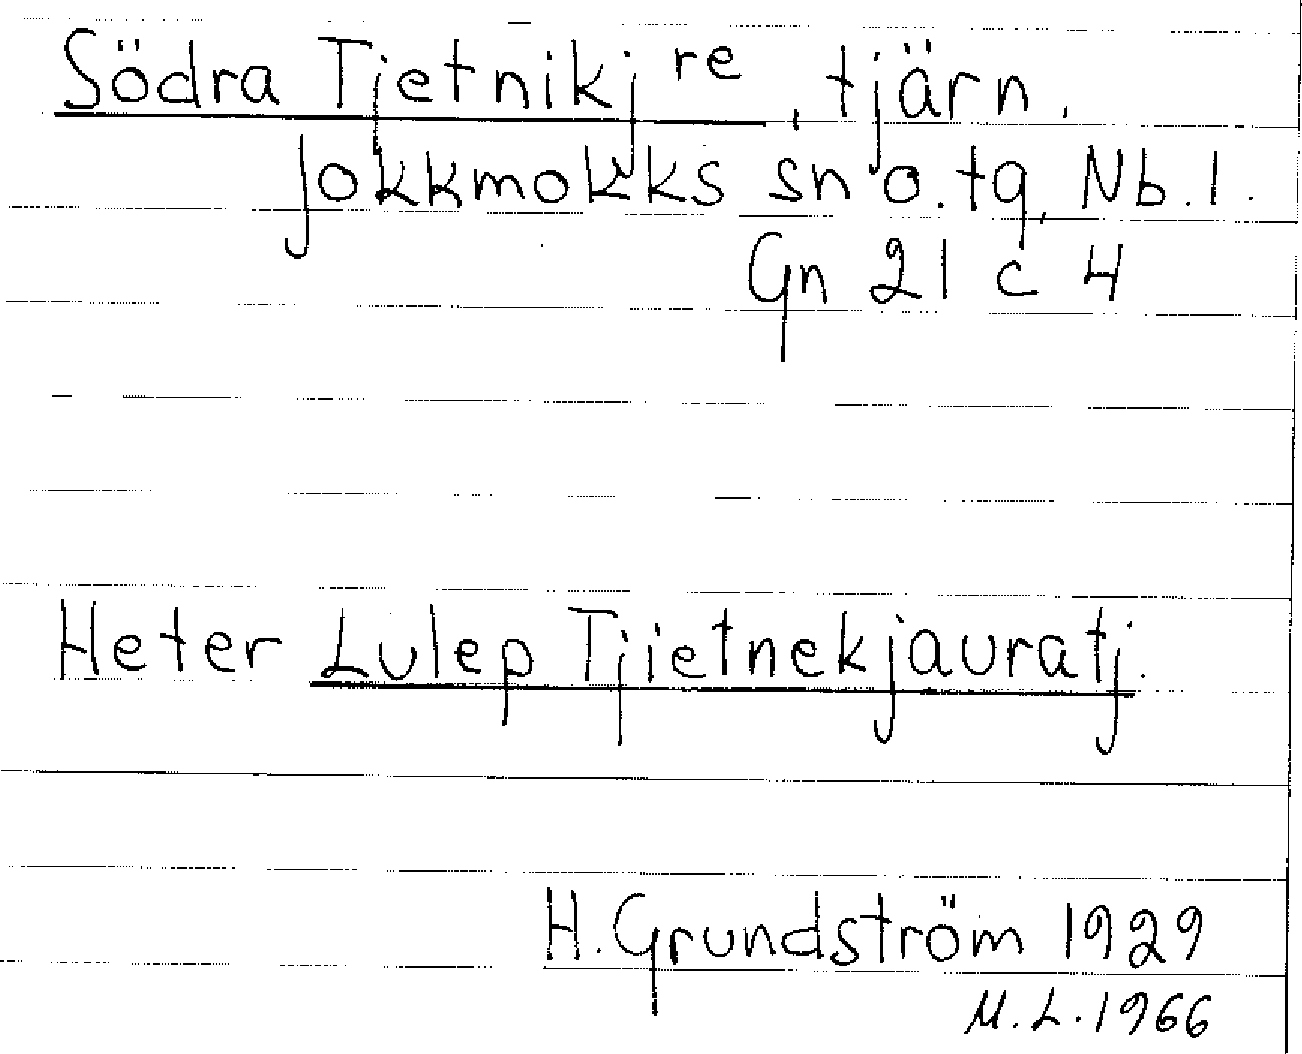 Södra Tjetnikj re, tjärn.
Jokkmokks sn o. tg, Nb. l.
Gn 21 c 4
Heter Lulep Tjietnekjauratj.
H. Grundström 1929
M.L. 1966